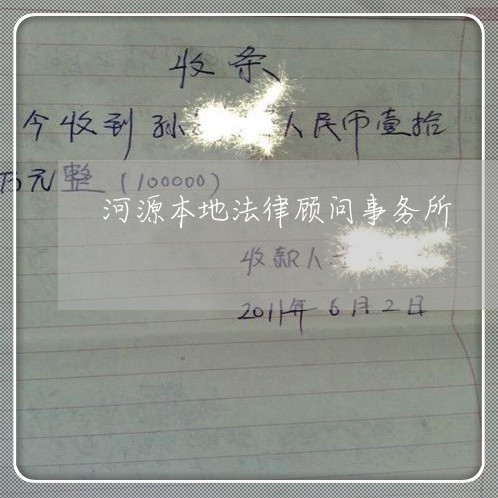 收条
今收到孙 人民币壹拾
万元整（100000）
河源本地法律顾问事务所
收款人
2011年6月2日